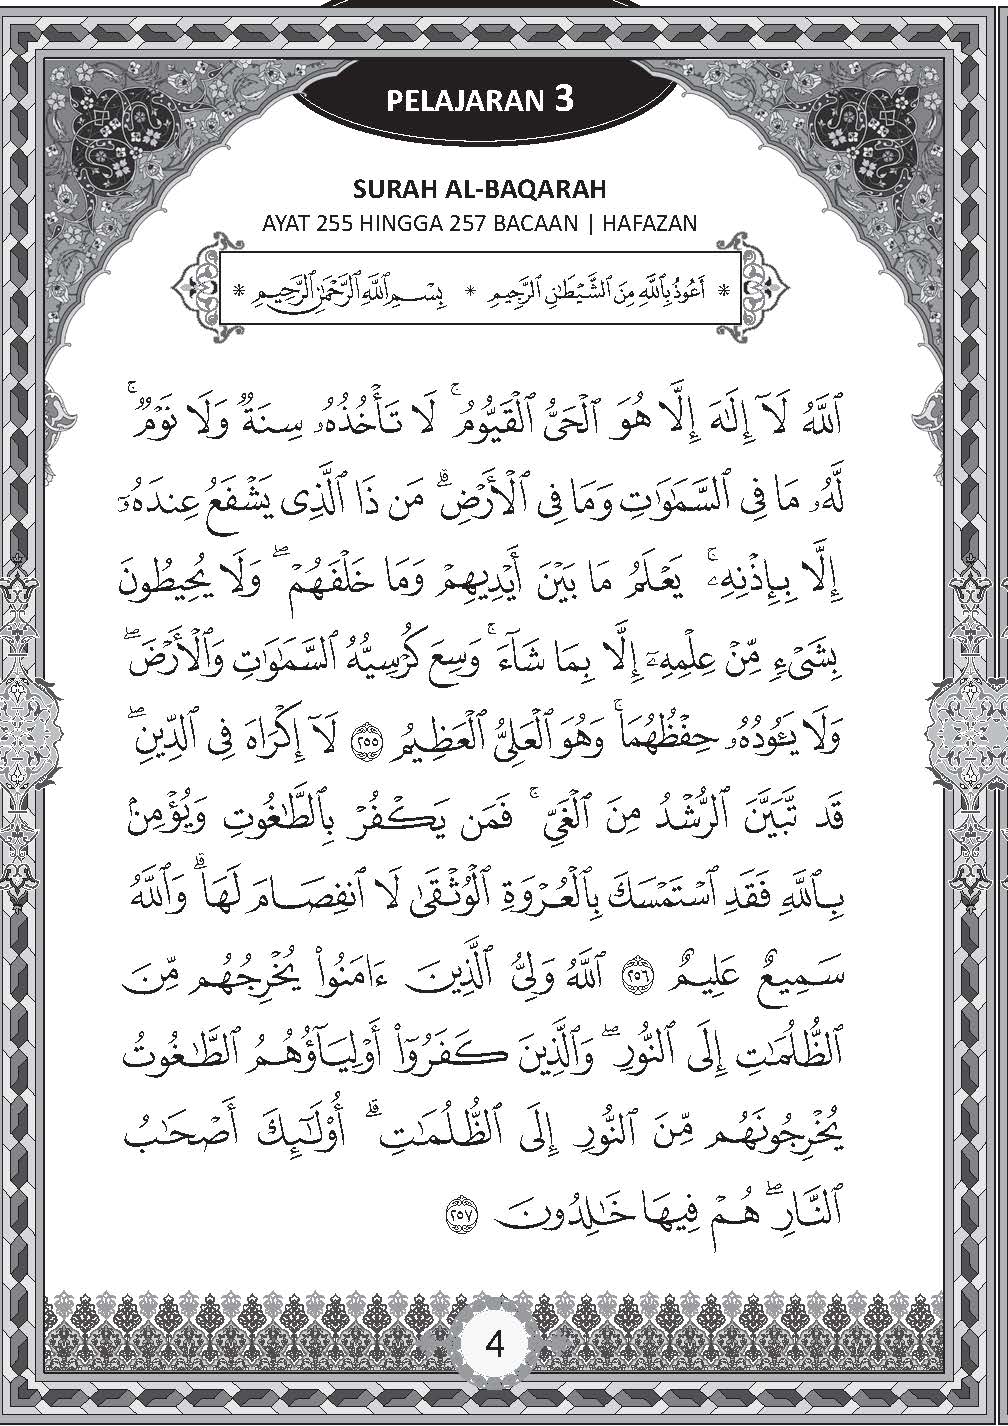 PELAJARAN 3
SURAH AL-BAQARAH
AYAT 255 HINGGA 257 BACAAN | HAFAZAN
* أَعُوذُ بِٱللَّهِ مِنَ ٱلشَّيْطَٰنِ ٱلرَّجِيمِ * بِسْمِ ٱللَّهِ ٱلرَّحْمَٰنِ ٱلرَّحِيمِ *
ٱللَّهُ لَآ إِلَٰهَ إِلَّا هُوَ ٱلْحَىُّ ٱلْقَيُّومُ ۚ لَا تَأْخُذُهُۥ سِنَةٌ وَلَا نَوْمٌ ۚ
لَّهُۥ مَا فِى ٱلسَّمَٰوَٰتِ وَمَا فِى ٱلْأَرْضِ ۗ مَن ذَا ٱلَّذِى يَشْفَعُ عِندَهُۥٓ
إِلَّا بِإِذْنِهِۦ ۚ يَعْلَمُ مَا بَيْنَ أَيْدِيهِمْ وَمَا خَلْفَهُمْ ۖ وَلَا يُحِيطُونَ
بِشَىْءٍ مِّنْ عِلْمِهِۦٓ إِلَّا بِمَا شَآءَ ۚ وَسِعَ كُرْسِيُّهُ ٱلسَّمَٰوَٰتِ وَٱلْأَرْضَ ۖ
وَلَا يَـُٔودُهُۥ حِفْظُهُمَا ۚ وَهُوَ ٱلْعَلِىُّ ٱلْعَظِيمُ ٢٥٥ لَآ إِكْرَاهَ فِى ٱلدِّينِ ۖ
قَد تَّبَيَّنَ ٱلرُّشْدُ مِنَ ٱلْغَىِّ ۚ فَمَن يَكْفُرْ بِٱلطَّٰغُوتِ وَيُؤْمِنۢ
بِٱللَّهِ فَقَدِ ٱسْتَمْسَكَ بِٱلْعُرْوَةِ ٱلْوُثْقَىٰ لَا ٱنفِصَامَ لَهَا ۗ وَٱللَّهُ
سَمِيعٌ عَلِيمٌ ٢٥٦ ٱللَّهُ وَلِىُّ ٱلَّذِينَ ءَامَنُوا۟ يُخْرِجُهُم مِّنَ
ٱلظُّلُمَٰتِ إِلَى ٱلنُّورِ ۖ وَٱلَّذِينَ كَفَرُوٓا۟ أَوْلِيَآؤُهُمُ ٱلطَّٰغُوتُ
يُخْرِجُونَهُم مِّنَ ٱلنُّورِ إِلَى ٱلظُّلُمَٰتِ ۗ أُو۟لَٰٓئِكَ أَصْحَٰبُ
ٱلنَّارِ ۖ هُمْ فِيهَا خَٰلِدُونَ ٢٥٧
4